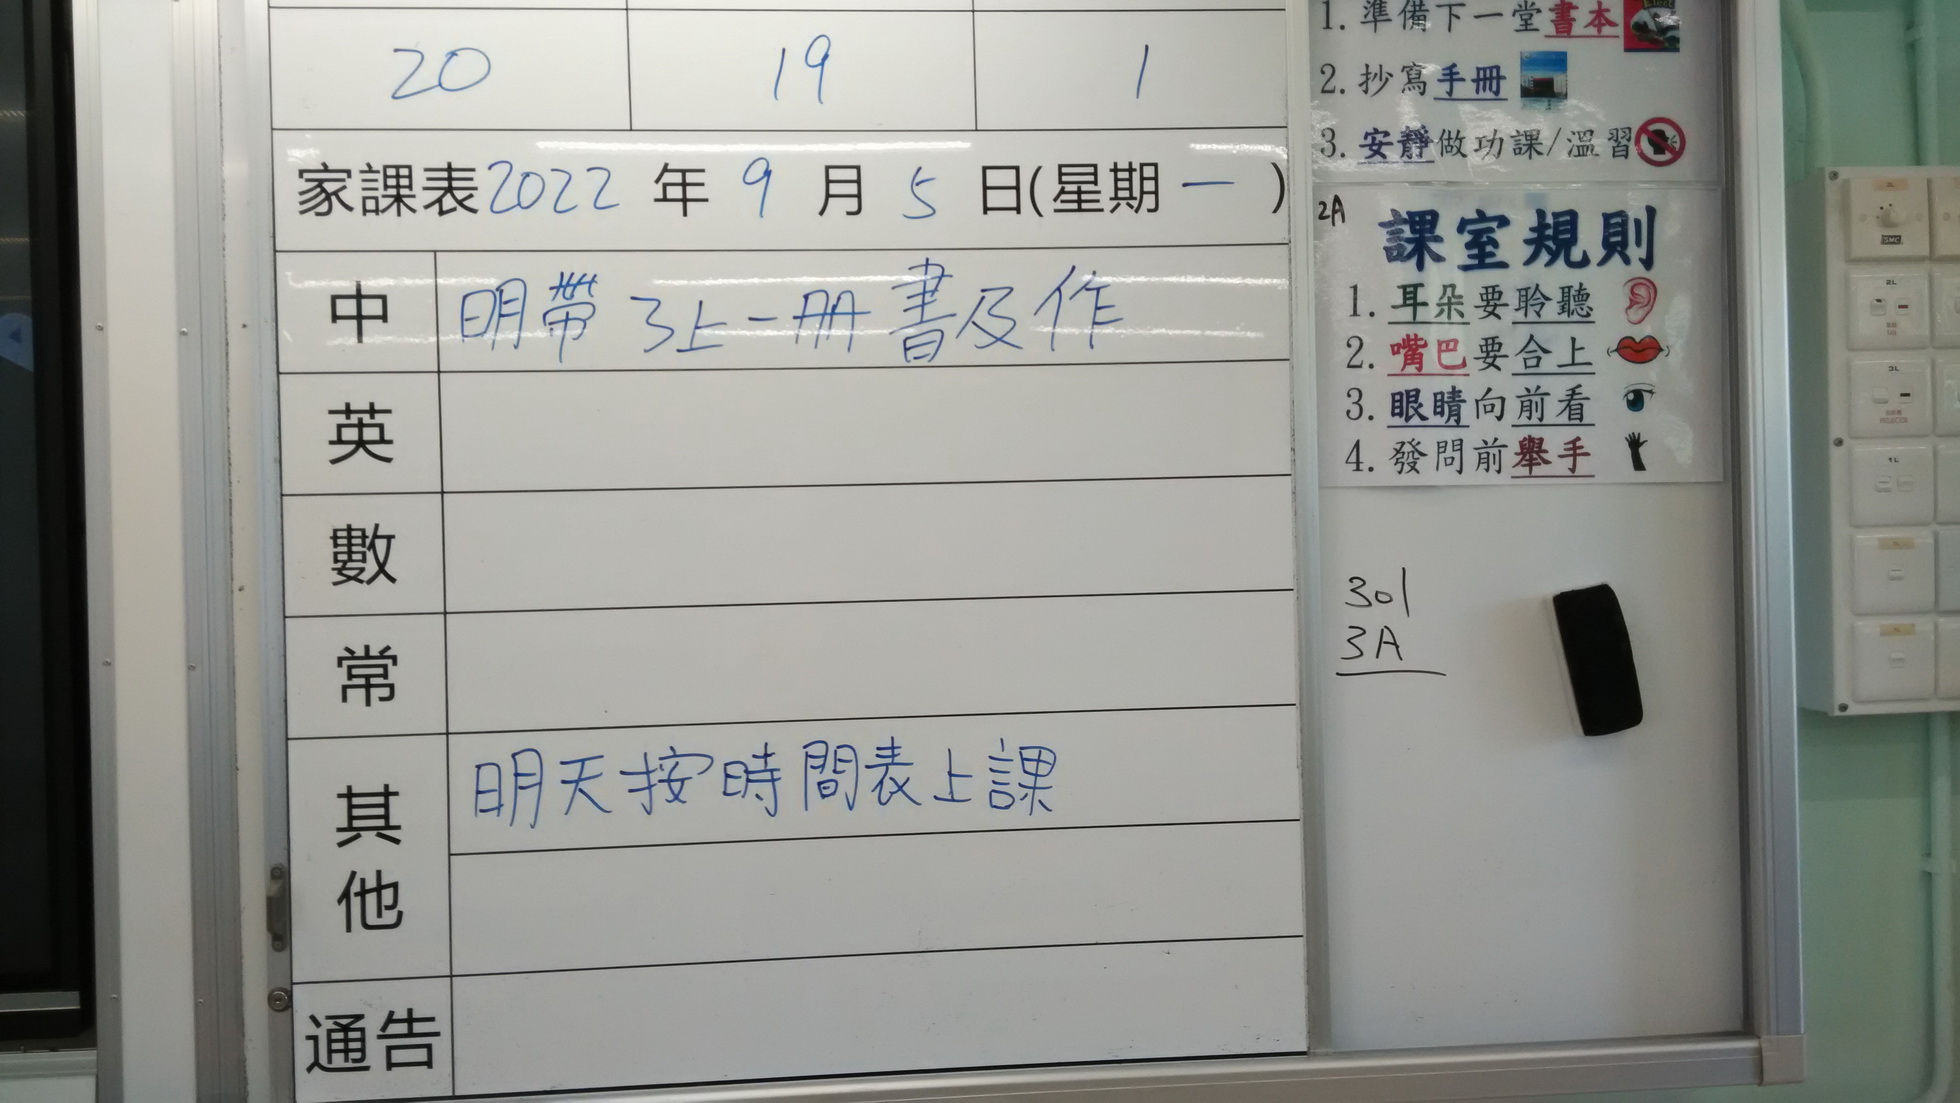 20 19 1
家課表2022年9月5日(星期一)
中 明帶3上一冊書及作
英
數
常
其他 明天按時間表上課
通告
1. 準備下一堂書本
2. 抄寫手冊
3. 安靜做功課/溫習
2A
課室規則
1. 耳朵要聆聽
2. 嘴巴要合上
3. 眼睛向前看
4. 發問前舉手
301
3A
2L
3L
1L